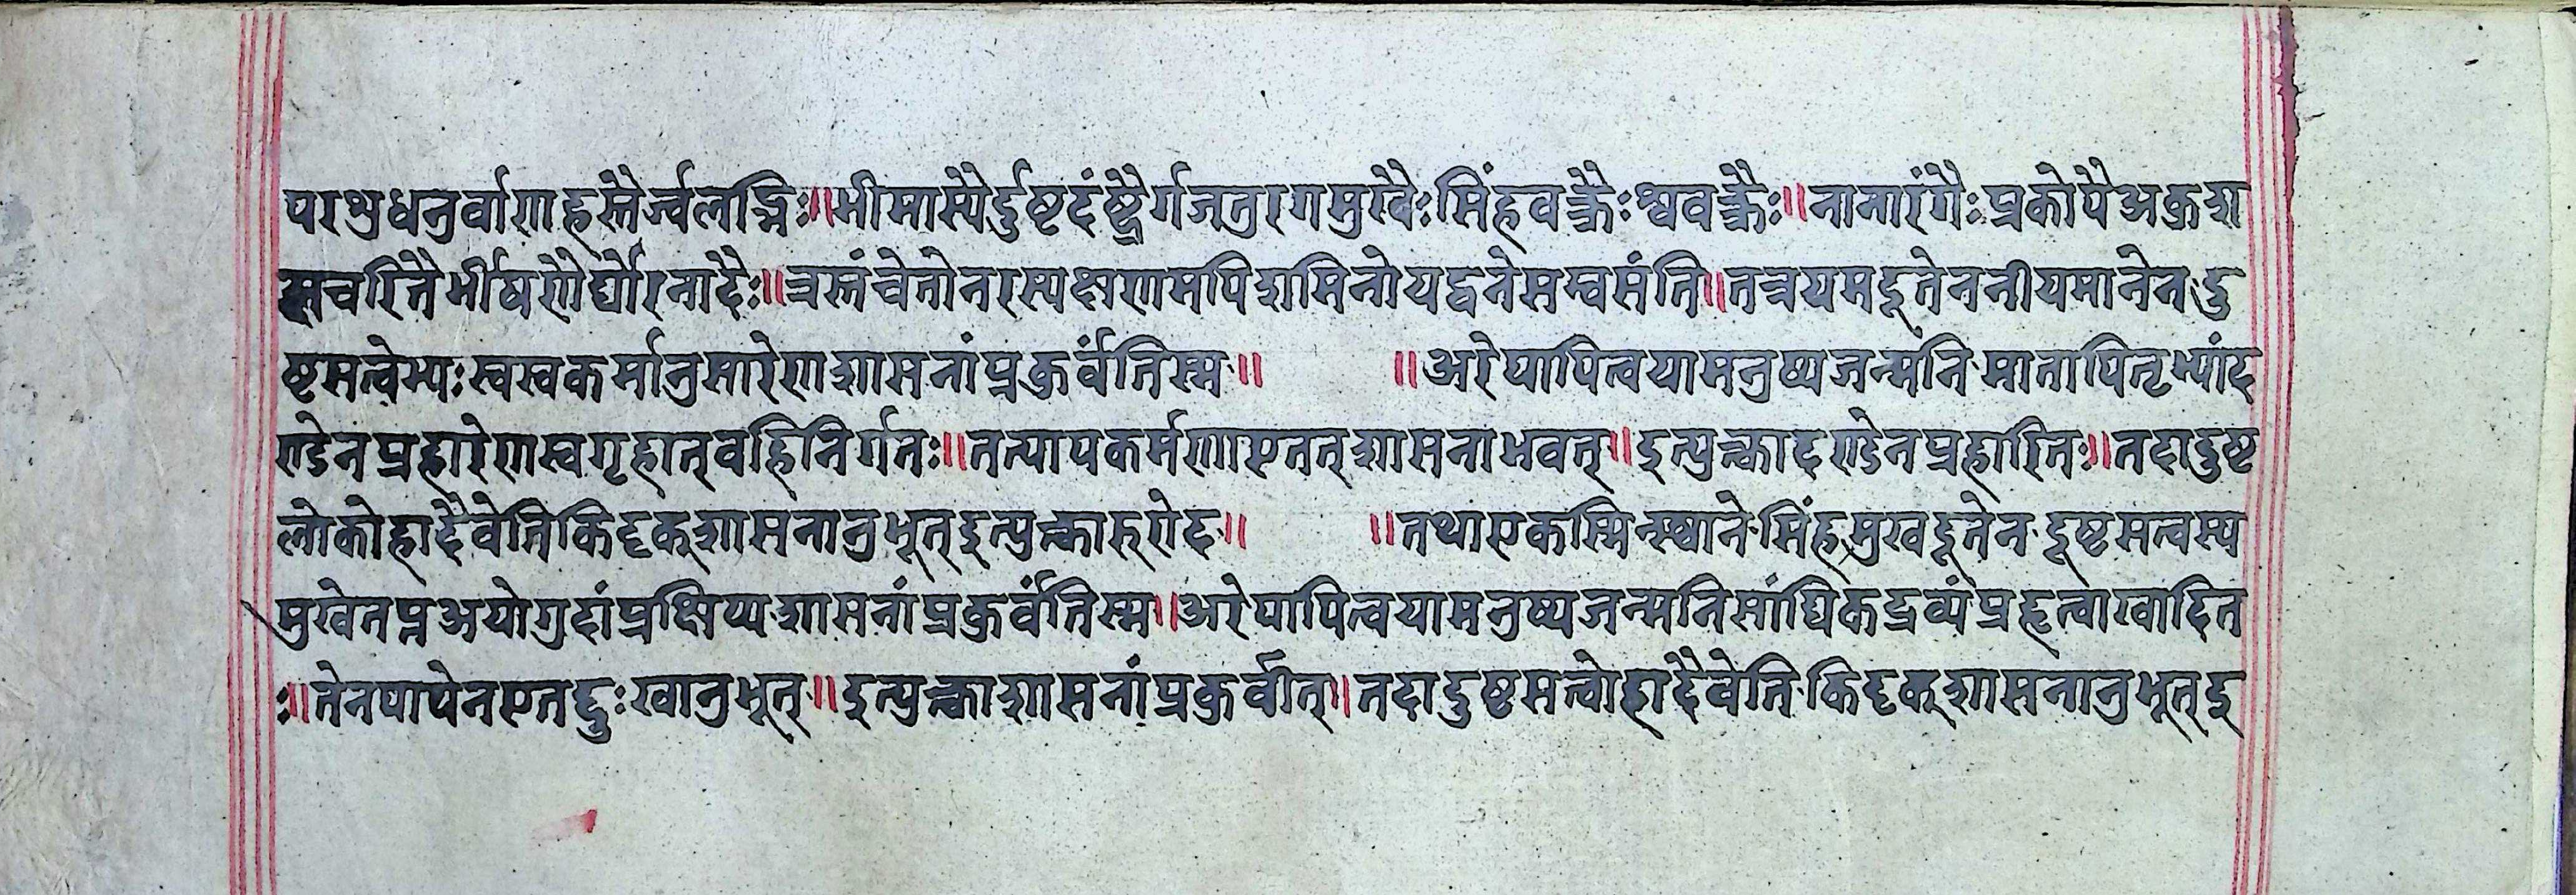 परशुधनुर्वाणहस्तैर्ज्वलद्भिः॥भीमास्यैर्दुष्टदंष्ट्रैर्गजतुरगमुखैः सिंहवक्त्रैः श्ववक्त्रैः॥नानारंगैः प्रकोपै अकुशा
सचरितै र्भीषणैर्घोरनादैः॥त्रस्तं चेतो नरस्य क्षणमपि शमितो यद्वने सम्वसंति॥तत्र यमदूतेन नीयमानेन दु
ष्टसत्वेभ्यः स्वस्वकर्मानुसारेण शासनां प्रकुर्वंतिस्म॥ ॥अरे पापि त्वया मनुष्यजन्मनि मातापितृभ्यां द
ण्डेन प्रहारेण स्वगृहात् वहिनिर्गतः॥तत्पापकर्मणा एतत् शासना भवत्॥इत्युक्त्वा दण्डेन प्रहारितः॥तदा दुष्ट
लोको हा दैवेति किदृक् शासनानुभूत् इत्युक्त्वा रुरोद॥ ॥तथा एकस्मिन्स्थाने सिंहमुखदूतेन दूष्टसत्वस्य
मुखे तप्त अयोगुदां प्रक्षिप्य शासनां प्रकुर्वंतिस्म॥अरे पापि त्वया मनुष्यजन्मनि सांघिकद्रव्यं प्रहृत्वा खादित
ः॥तेन पापेन एतद्दुःखानुभूत्॥इत्युक्त्वा शासनां प्रकुर्वीत्॥तदा दुष्टसत्वो हा दैवेति किदृक् शासनानुभूत् इ